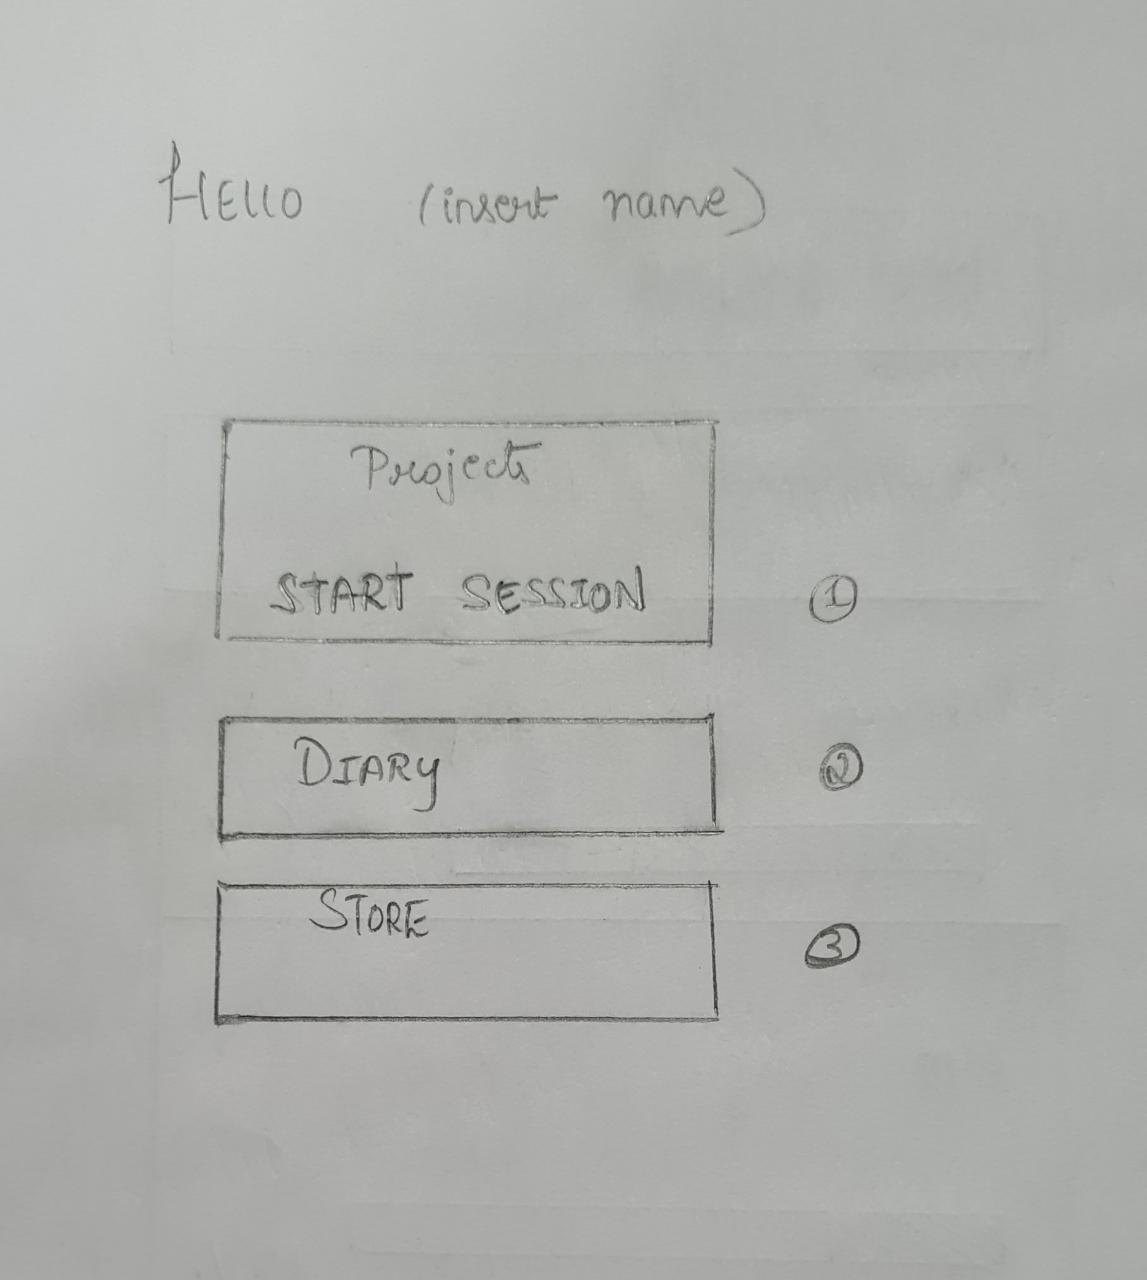 HELLO (insert name)
Projects
START SESSION
1
DIARY
2
STORE
3